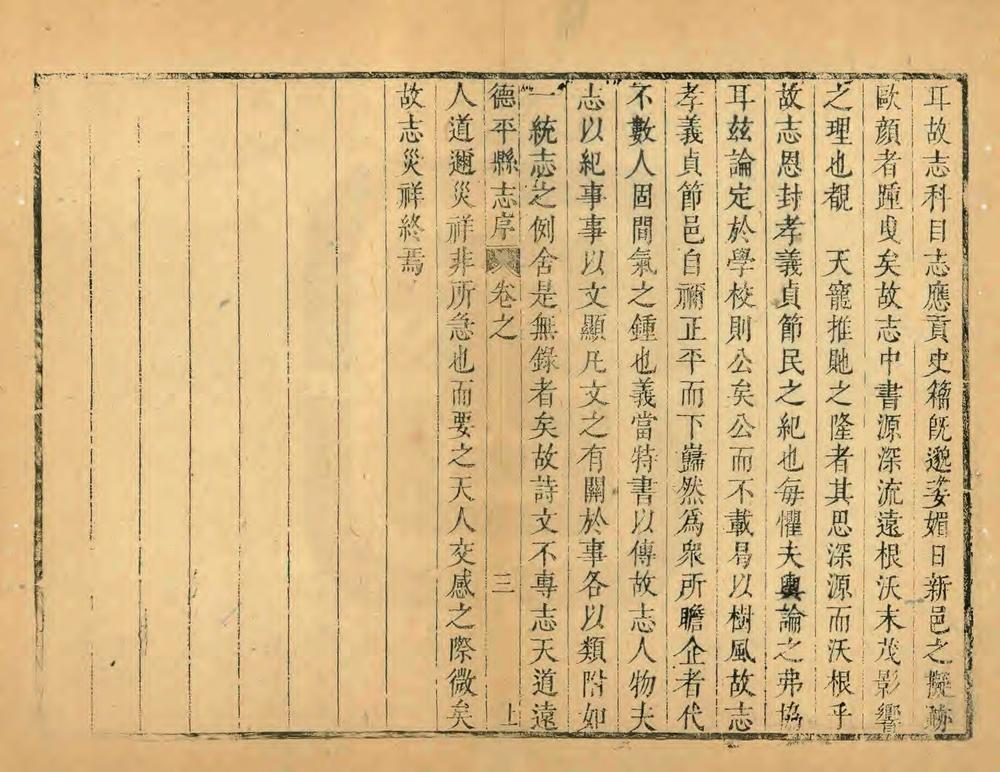 耳故志科目志應貢史籍既邈姿媚日新邑之擬跡
歐顏者踵曳矣故志中書源深流遠根沃末茂影響
之理也覩　天寵推貤之隆者其思深源而沃根乎
故志恩封孝義貞節民之紀也每懼夫輿論之弗協
耳玆論定於學校則公矣公而不載曷以樹風故志
孝義貞節邑自禰正平而下巋然爲衆所瞻企者代
不數人固間氣之鍾也義當特書以傳故志人物夫
志以紀事事以文顯凡文之有關於事各以類附如
一統志之例舍是無錄者矣故詩文不專志天道遠
德平縣志序 卷之 三 上
人道邇災祥非所急也而要之天人交感之際微矣
故志災祥終焉